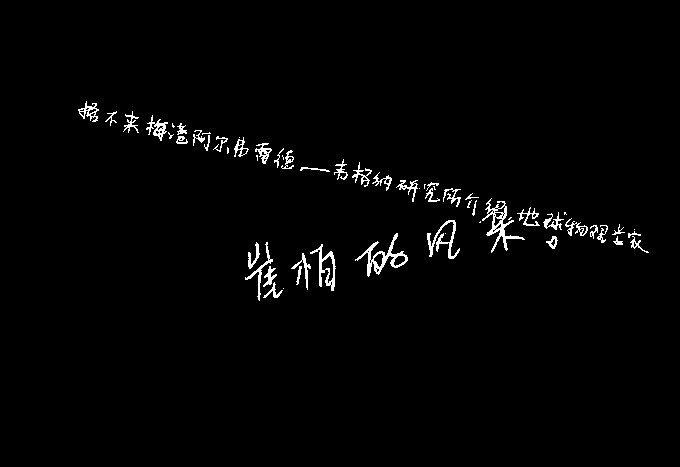 据不来梅港阿尔弗雷德——韦格纳研究所介绍，地球物理学家
崔柏的风采